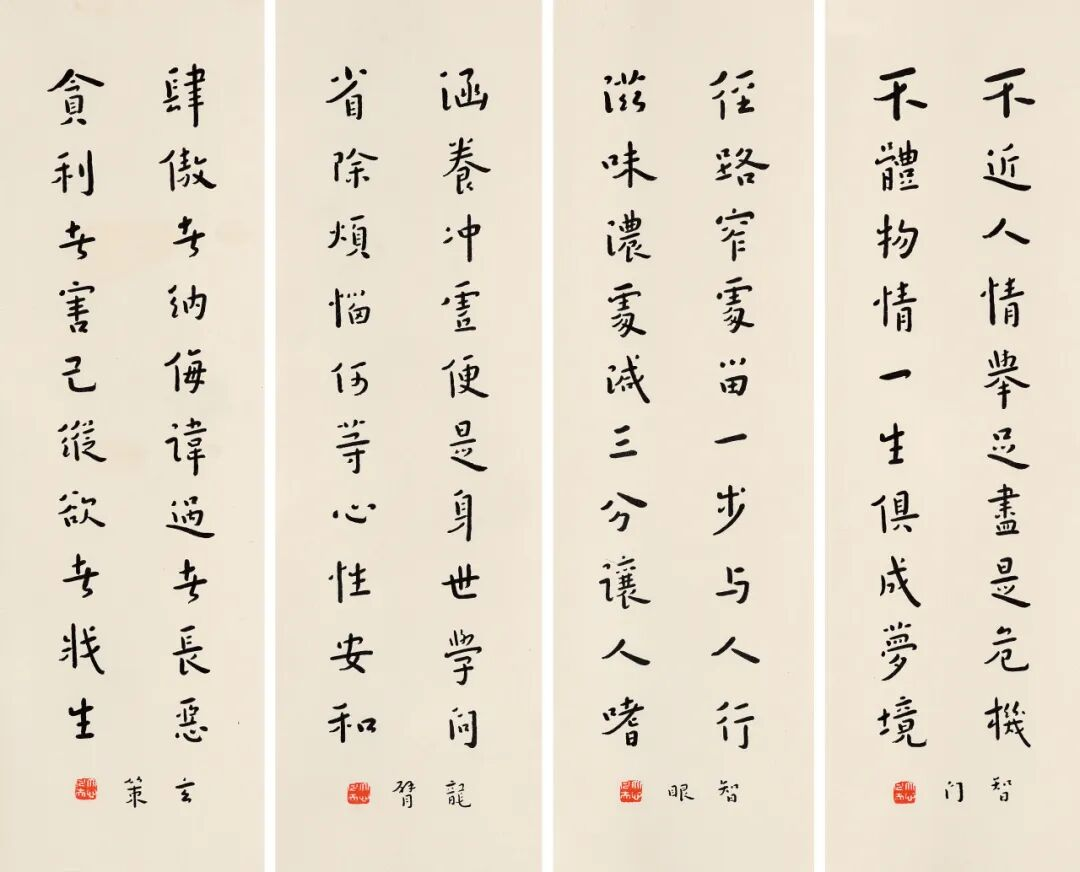 不近人情舉足盡是危機
不體物情一生俱成夢境
智门
径路窄處畱一步与人行
滋味濃處減三分讓人嗜
智眼
涵養冲虛便是身世學问
省除煩惱何等心性安和
龍臂
肆傲者納侮諱過者長惡
貪利者害己縱欲者戕生
玄策